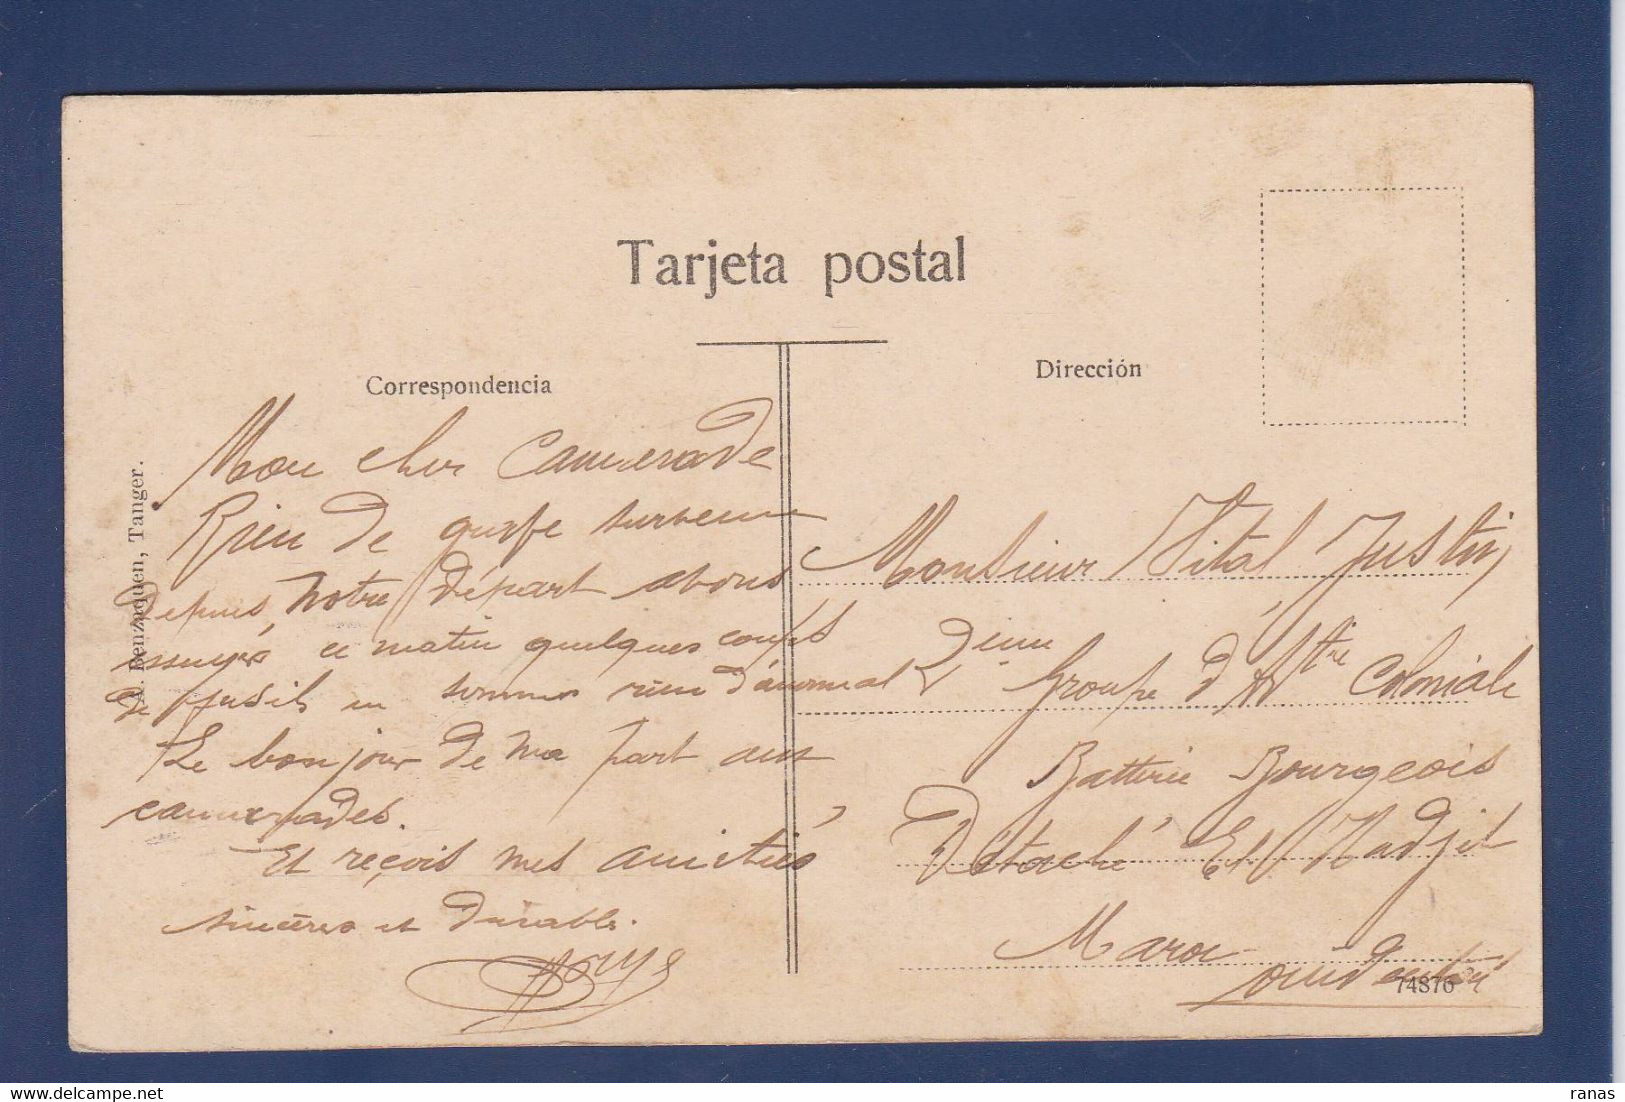 Tarjeta postal
Correspondencia
Dirección
A. Benzaquen, Tanger.
Mon cher Camerade
Rien de survenu
depuis notre départ avons
essuyés ce matin quelques coups
de fusils en somme rien d'anormal
Le bonjour de ma part aux
camerades.
Et reçois mes amitiés
sincères et durables.
Monsieur Vital Justin
2ieme
Groupe d'Attrie Coloniale
Batterie Bourgeois
Détaché El Hadjeb
Maroc
occidental
74876
delcampe.net
ranas